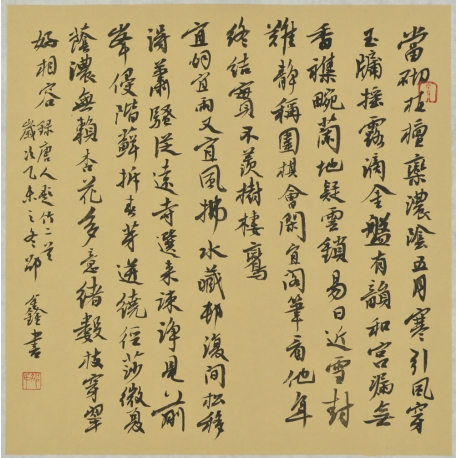 當砌植檀欒濃陰五月寒引風穿
玉牖搖露滴金盤有韻和宮漏無
香襍畹蘭地疑雲鎖易日近雪封
難靜稱圍棋會閑宜閣筆看他年
終結實不羨樹棲鸞
宜烟宜雨又宜風拂水藏邨復間松移
得蕭騷從遠寺選来疎淨見前
峯侵階蘚拆春芽迸繞徑莎微夏
蔭濃無賴杏花多意緒數枝穿翠
好相容 錄唐人竹詩二首
歲次乙未之冬 鑫書